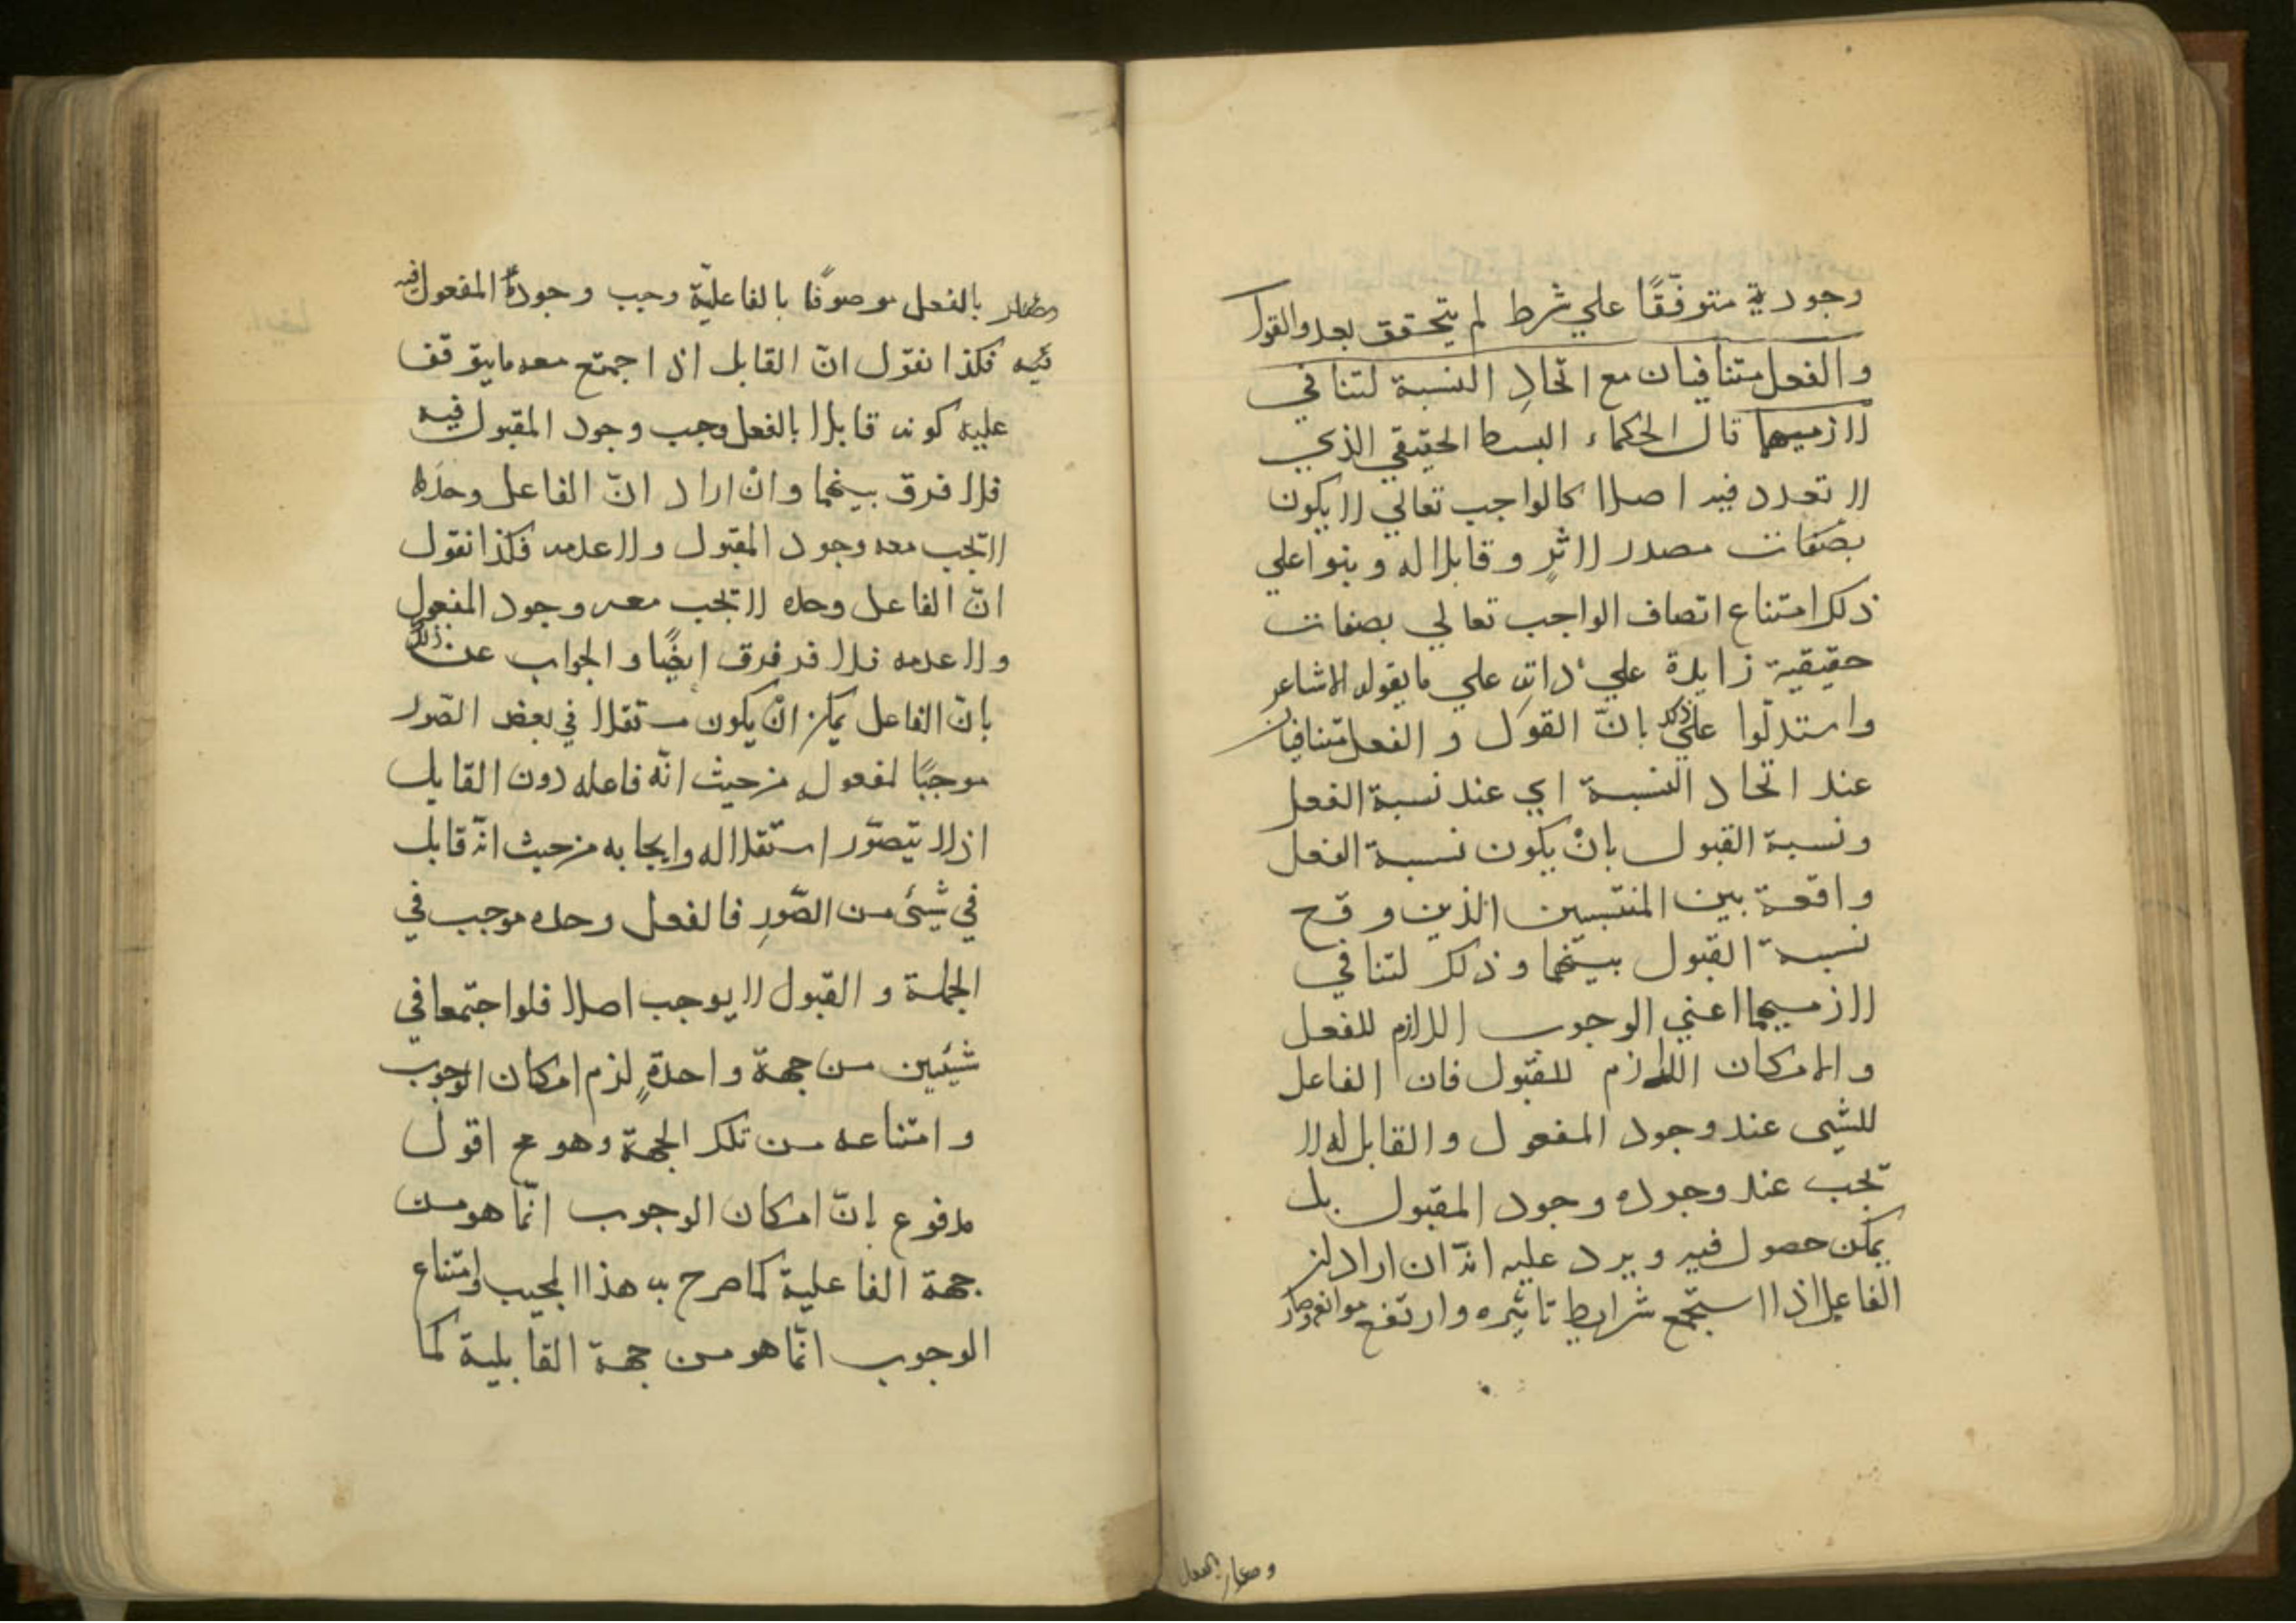 وجودية متوقّفًا علي شرط لم يتحقق بعد والقول
والفعل متنافيان مع اتّحادِ النسبة لتنافي
لازميهما قال الحكماء البسط الحقيقي الذي
لا تعدد فيه اصلا كالواجب تعالي لا يكون
بصفات مصدر لاثرٍ وقابلا له وبنوا علي
ذلك امتناع اتصاف الواجب تعالي بصفات
حقيقية زايدة علي ذاته علي ما يقوله الاشاعر
واستدلّوا علي ذلك بانّ القول والفعل متنافيان
عند اتحاد النسبة اي عند نسبة الفعل
ونسبة القبول بانْ يكون نسبة الفعل
واقعة بين المنتسبين الذين وقع
نسبة القبول بينهما وذلك لتنافي
لازميهما اعني الوجوب اللازم للفعل
والامكان اللازم للقبول فان الفاعل
للشيء عند وجود المفعول والقابل له لا
تجب عند وجوده وجود المقبول بل
يمكن حصول فيه ويرد عليه انّه ان اراد
الفاعل اذا استجمع شرايط تاثيره وارتفع موانعه وصار
وصار بالفعل
وصار بالفعل موصوفًا بالفاعليّة وجب وجود المفعول فيه
فيه فكذا نقول انّ القابل اذا اجتمع معه ما يتوقف
عليه كونه قابلا بالفعل وجب وجود المقبول فيه
فلا فرق بينهما وانْ اراد انّ الفاعل وحده
لا تجب معه وجود المقبول ولا عدمه فكذا نقول
انّ الفاعل وحده لا تجب معه وجود المفعول
ولا عدمه فلا فر فرق ايضًا والجواب عن ذلك
بانّ الفاعل يمكن انّ يكون مستقلا في بعض الصّور
موجبًا لمفعوله من حيث انّه فاعله دون القابل
اذ لا يتصوّر استقلاله وايجابه من حيث انّه قابل
في شيئ من الصّورِ فالفعل وحده موجب في
الجملة والقبول لا يوجب اصلا فلو اجتمعا في
شيئين من جهة واحدةٍ لزم امكان الوجوب
وامتناعه من تلك الجهة وهو مح اقول
مدفوع بانّ امكان الوجوب انّما هو من
جهة الفاعلية كما صرح به هذا المجيب وامتناع
الوجوب انّما هو من جهة القابلية كما